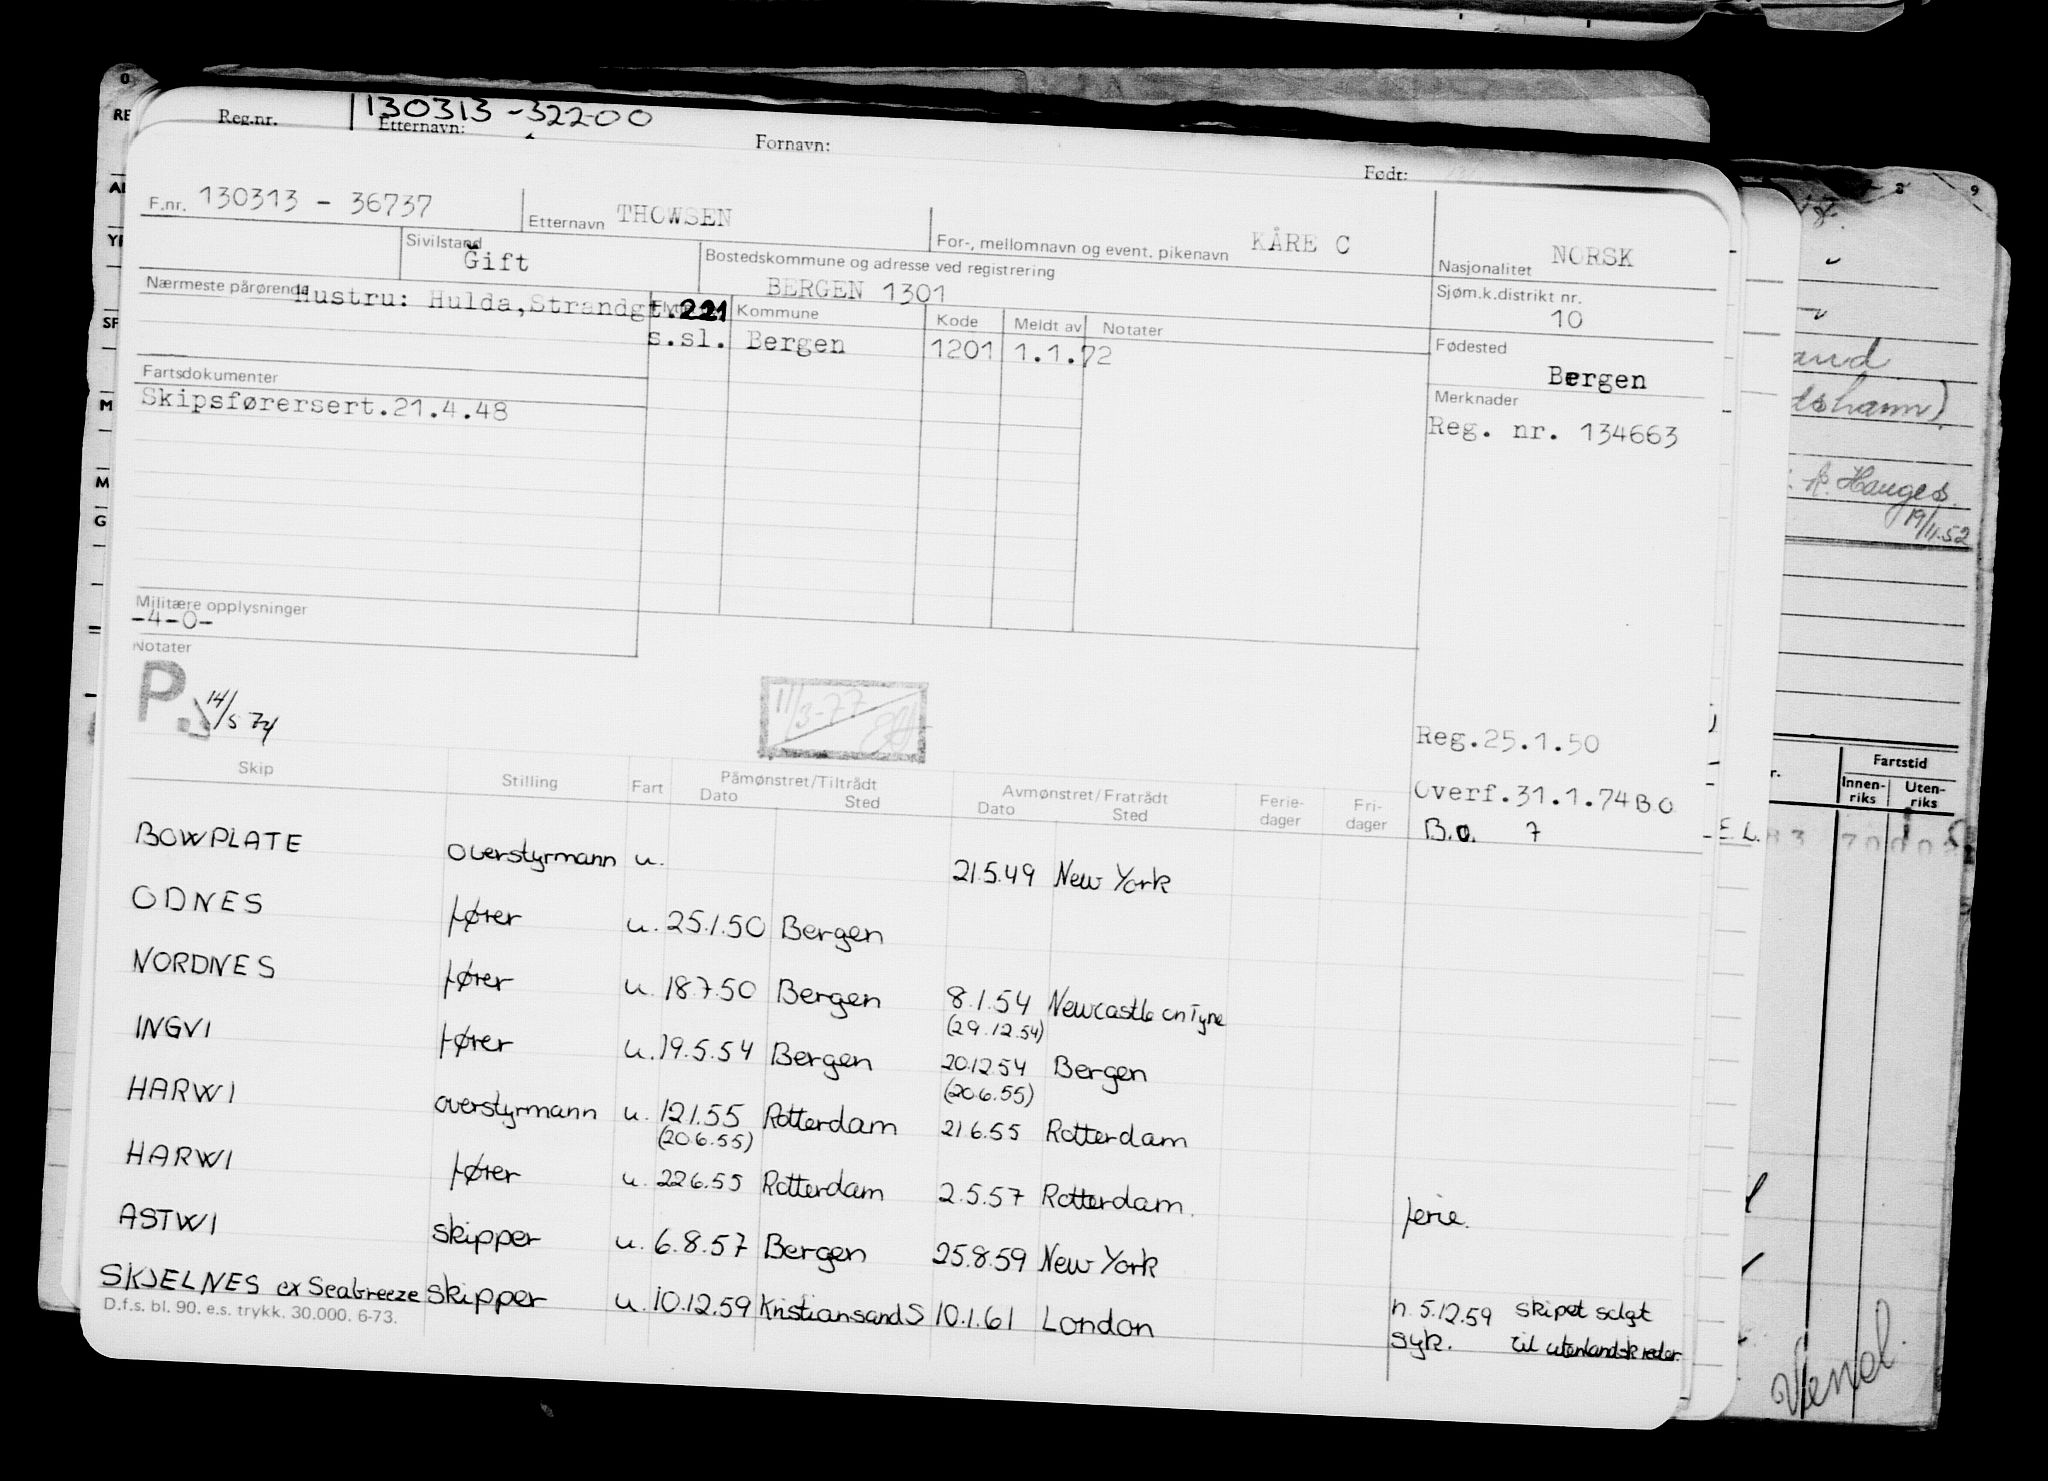 Reg.nr. 130313-32200
Etternavn: Fornavn: Født:
F.nr. 130313 - 36737 Etternavn THOWSEN For-, mellomnavn og event. pikenavn KÅRE C Nasjonalitet NORSK
Sivilstand Gift Bostedskommune og adresse ved registrering BERGEN 1301 Sjøm.k.distrikt nr. 10
Nærmeste pårørende Hustru: Hulda, Strandgt.221 Kommune Kode Meldt av Notater
s.sl. Bergen 1201 1.1.72 Fødested Bergen
Fartsdokumenter
Skipsførersert.21.4.48
Merknader
Reg. nr. 134663
Militære opplysninger
-4-0-
Notater
P. 14/5 74
11/3-77
Reg.25.1.50
Overf.31.1.74 BO
B.O. 7
Skip Stilling Fart Påmønstret/Tiltrådt Dato Sted Avmønstret/Fratrådt Dato Sted Ferie-dager Fri-dager
BOWPLATE overstyrmann u. 21.5.49 New York
ODNES fører u. 25.1.50 Bergen
NORDNES fører u. 18.7.50 Bergen 8.1.54 Newcastle on Tyne
(29.12.54)
INGVI fører u. 19.5.54 Bergen 20.12.54 Bergen
(20.6.55)
HARWI overstyrmann u. 12.1.55 Rotterdam 21.6.55 Rotterdam
(20.6.55)
HARWI fører u. 22.6.55 Rotterdam 2.5.57 Rotterdam. ferie.
ASTWI skipper u. 6.8.57 Bergen 25.8.59 New York
SKJELNES ex Seabreeze skipper u. 10.12.59 Kristiansand S 10.1.61 London n. 5.12.59 skipet solgt
syk. til utenlandsk reder.
D.f.s. bl. 90. e.s. trykk. 30.000. 6-73.
8 9
Hauges
19/11.52
Fartstid
Innen-riks Uten-riks